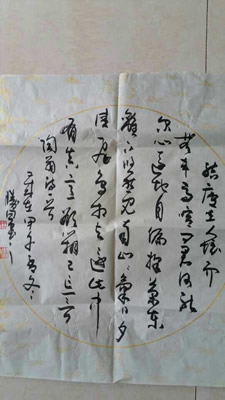 结庐在人境而
无车马喧问君何能
尔心远地自偏采菊东
篱下悠然见南山山气日夕
佳飞鸟相与还此中
有真意欲辨已忘言
岁在甲午